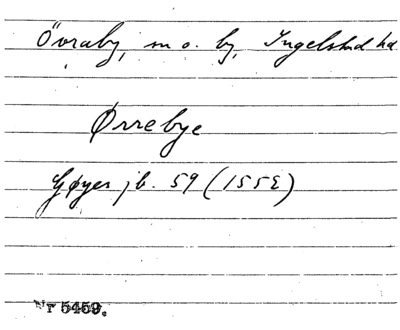 Övraby, sn o. by, Ingelstad hd
Ørrebye
Gøyes jb. 59 (1552)
Nr 5459.